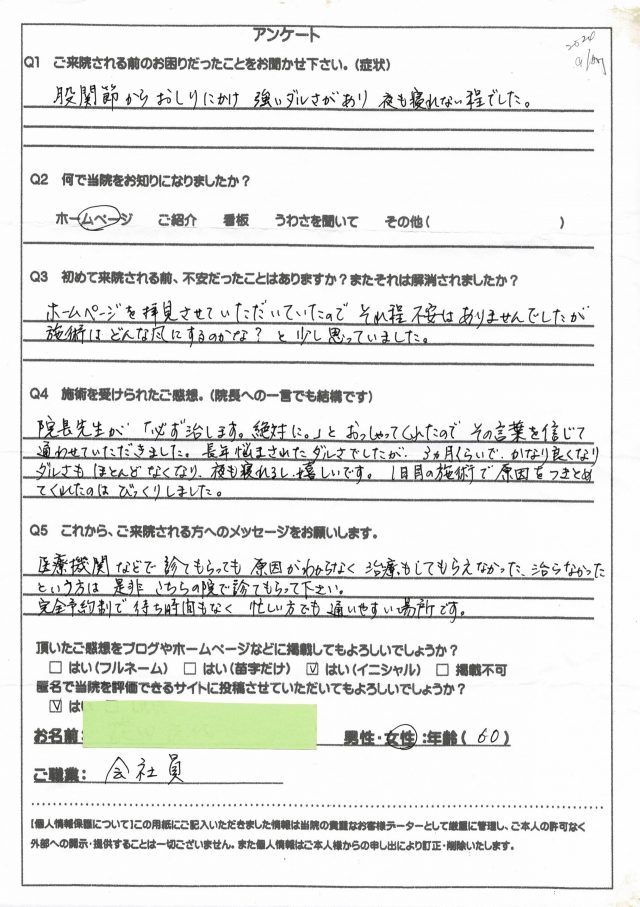 アンケート
2020
Q1 ご来院される前のお困りだったことをお聞かせ下さい。(症状)
股関節からおしりにかけ 強いダルさがあり 夜も寝れない程でした。
Q2 何で当院をお知りになりましたか？
ホームページ ご紹介 看板 うわさを聞いて その他( )
Q3 初めて来院される前、不安だったことはありますか？またそれは解消されましたか？
ホームページを拝見させていただいていたので それ程 不安はありませんでしたが
施術は どんな風にするのかな？と少し思っていました。
Q4 施術を受けられたご感想。(院長への一言でも結構です)
院長先生が「必ず治します。絶対に。」と おっしゃってくれたので その言葉を信じて
通わせていただきました。長年悩まされたダルさでしたが、3ヵ月くらいで、かなり良くなり
ダルさも ほとんどなくなり、夜も寝れるし、嬉しいです。1日目の施術で原因をつきとめ
てくれたのは びっくりしました。
Q5 これから、ご来院される方へのメッセージをお願いします。
医療機関などで診てもらっても 原因がわからなく 治療もしてもらえなかった、治らなかった
という方は 是非 こちらの院で診てもらって下さい。
完全予約制で待ち時間もなく 忙しい方でも通いやすい場所です。
頂いたご感想をブログやホームページなどに掲載してもよろしいでしょうか？
□ はい(フルネーム) □ はい(苗字だけ) ☑ はい(イニシャル) □ 掲載不可
匿名で当院を評価できるサイトに投稿させていただいてもよろしいでしょうか？
☑ はい
お名前:
男性・女性:年齢( 60 )
ご職業: 会社員
【個人情報保護について】この用紙にご記入いただきました情報は当院の貴重なお客様データーとして厳重に管理し、ご本人の許可なく
外部への開示・提供することは一切ございません。また個人情報はご本人様からの申し出により訂正・削除いたします。